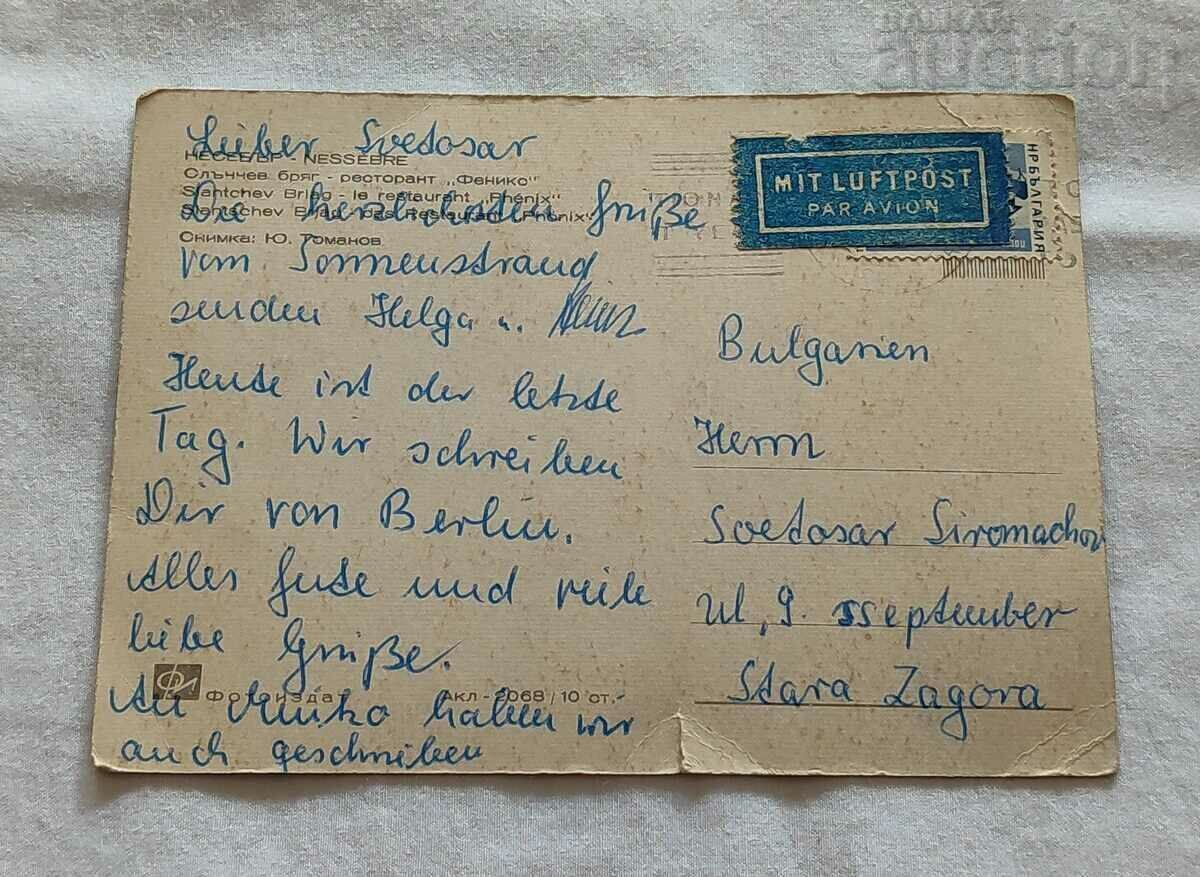 Lieber Svetosar
НЕСЕБЪР - NESSEBRE
Слънчев бряг - ресторант „Фенико“
Slantchev Briag - le restaurant „Phénix“
Slantchev Briag - das Restaurant „Phönix“
Снимка: Ю. Томанов
Die herzlichsten Grüße
vom Sonnenstrand
senden Helga u. Heinz
Heute ist der letzte
Tag. Wir schreiben
Dir von Berlin.
Alles Gute und viele
liebe Grüße.
An Minko haben wir
auch geschrieben
Фотоиздат
Акл - 2068 / 10 ст.-
MIT LUFTPOST
PAR AVION
НРБЪЛГАРИЯ
Bulgarien
Herrn
Svetosar Siromachov
Ul, 9. sseptember
Stara Zagora